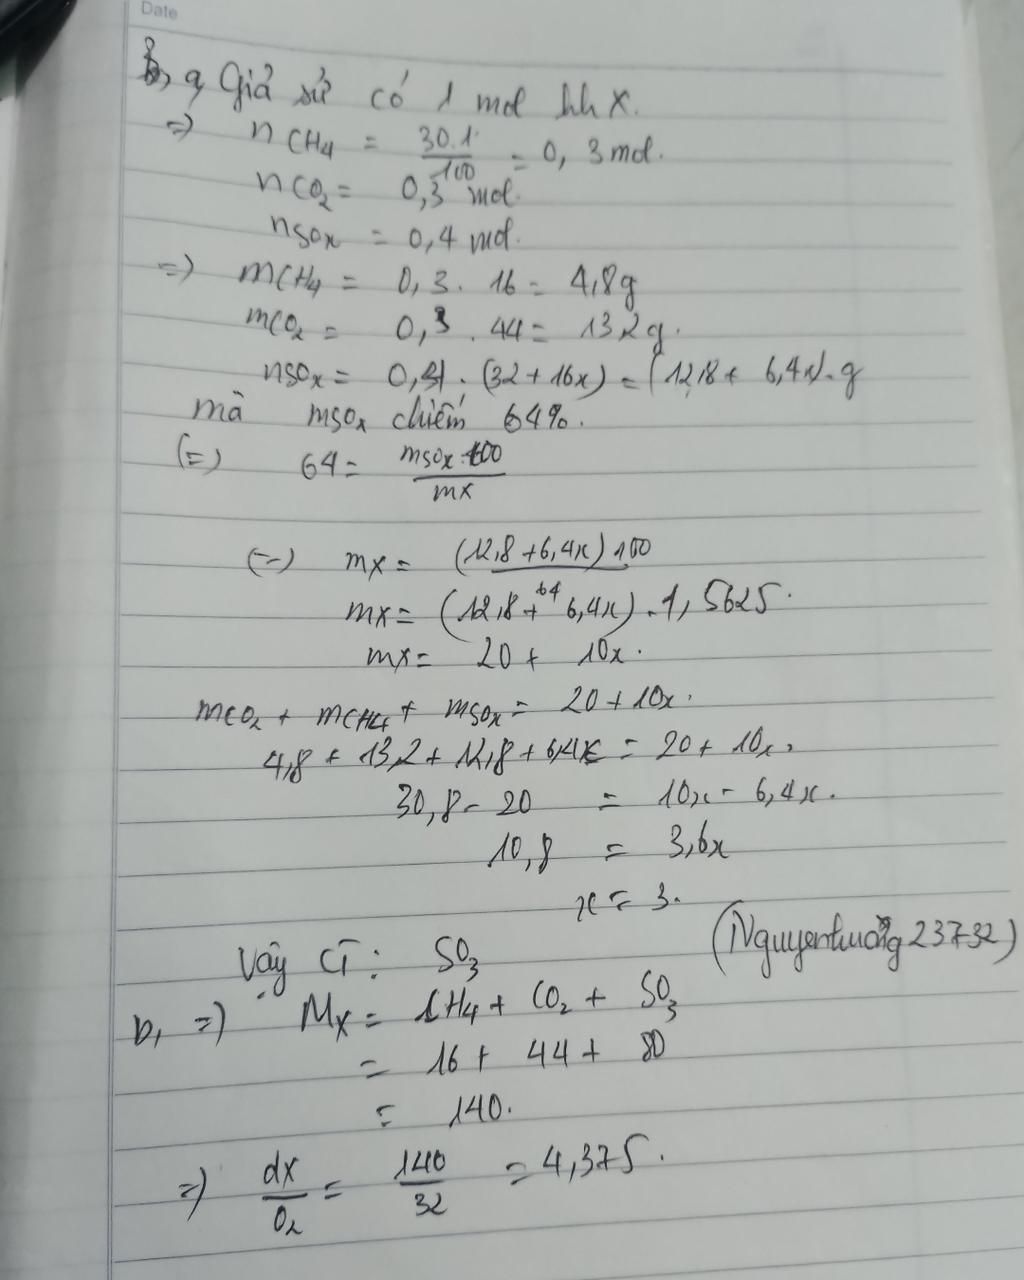 Date
a, Giả sử có 1 mol hh X.
=> nCH₄ = 30.1/100 = 0,3 mol.
nCO₂ = 0,3 mol.
nSOx = 0,4 mol.
=> mCH₄ = 0,3. 16 = 4,8g
mCO₂ = 0,3 . 44 = 13,2g.
nSOx = 0,4 . (32 + 16x) = (12,8 + 6,4x). g
mà mSOx chiếm 64%.
(=) 64 = mSOx.100/mX
(=) mX = (12,8 + 6,4x).100/64
mX = (12,8 + 6,4x).1,5625.
mX = 20 + 10x.
mCO₂ + mCH₄ + mSOx = 20 + 10x.
4,8 + 13,2 + 12,8 + 6,4x = 20 + 10x.
30,8 - 20 = 10x - 6,4x.
10,8 = 3,6x
x = 3.
(Nguyenhuong23732)
Vậy CT: SO₃
b, => Mx = CH₄ + CO₂ + SO₃
= 16 + 44 + 80
= 140.
=> dX/O₂ = 140/32 = 4,375.